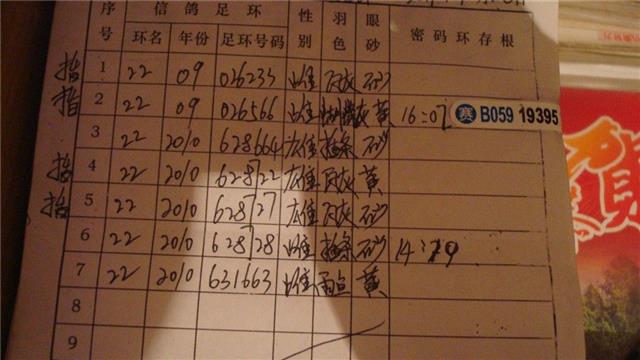 序号 信鸽足环 性别 羽色 眼砂 密码环存根
环名 年份 足环号码
1 22 09 026233 雌 灰 砂
2 22 09 026566 雌 灰 黄 16:07 赛 B059 19395
3 22 2010 628664 雄 条 砂
4 22 2010 628722 雄 灰 黄
5 22 2010 628727 雄 灰 砂
6 22 2010 628728 雌 条 砂 14:19
7 22 2010 631663 雌 雨点 黄
8
9
贺